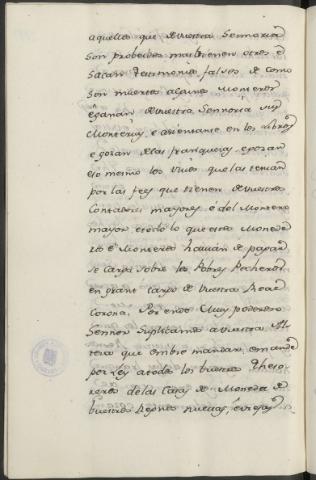 aquellos que de vuestra Sennoria
son probeidos matienen otros e
sacan testimonios falsos de como
son muertos algunos Monteros
e ganan de vuestra Sennoria sus
Monterias, e asientanse en los Libros
e gozan de las franquezas, e gozan
eso mesmo los vivos que las tenian
por las fees que tienen de vuestros
Contadores mayores o del Montero
mayor, e todo lo que estos Monede-
ros e Monteros havian de pagar
se carga sobre los Pobres Pecheros
en grant cargo de vuestra Real
Corona. Por ende Muy poderoso
Sennor suplicamos a vuestra Al-
teza que embie mandar, e mande
por Ley a todos los vuestros Theso-
reros de las Casas de Moneda de
vuestros Regnos nuevas, e viejas